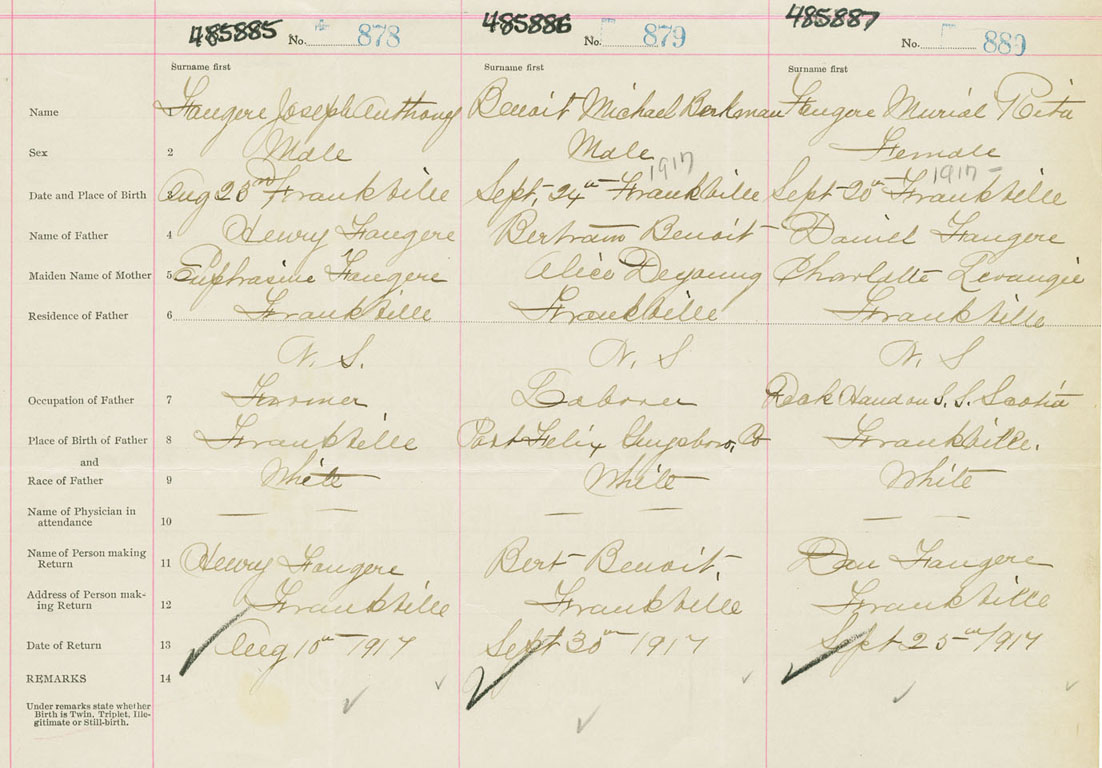 485885 485886 485887
No. 878 No. 879 No. 880
Surname first Surname first Surname first
Name Faugere Joseph Anthony Benoit Michael Berkman Faugere Murial Rita
Sex 2 Male Male Female
1917 1917
Date and Place of Birth 3 Aug Frankville Sept, 24th Frankville Sept 20th Frankville
Name of Father 4 Henry Faugere Bertram Benoit Daniel Faugere
Maiden Name of Mother 5 Euphrasine Faugere Alice Deyoung Charlotte Levangie
Residence of Father 6 Frankville Frankville Frankville
N. S. N. S N. S
Occupation of Father 7 Farmer Laborer Deck Hand on S. S. Scotia
Place of Birth of Father 8 Frankville Port Felix Co Frankville.
and
Race of Father 9 White White White
Name of Physician in
attendance 10 — — — — — —
Name of Person making
Return 11 Henry Faugere Bert Benoit. Dan Faugere
Address of Person mak-
ing Return 12 Frankville Frankville Frankville
Date of Return 13 Aug 10th 1917 Sept 30th 1917 Sept 25th 1917
REMARKS 14
Under remarks state whether
Birth is Twin, Triplet, Ille-
gitimate or Still-birth.